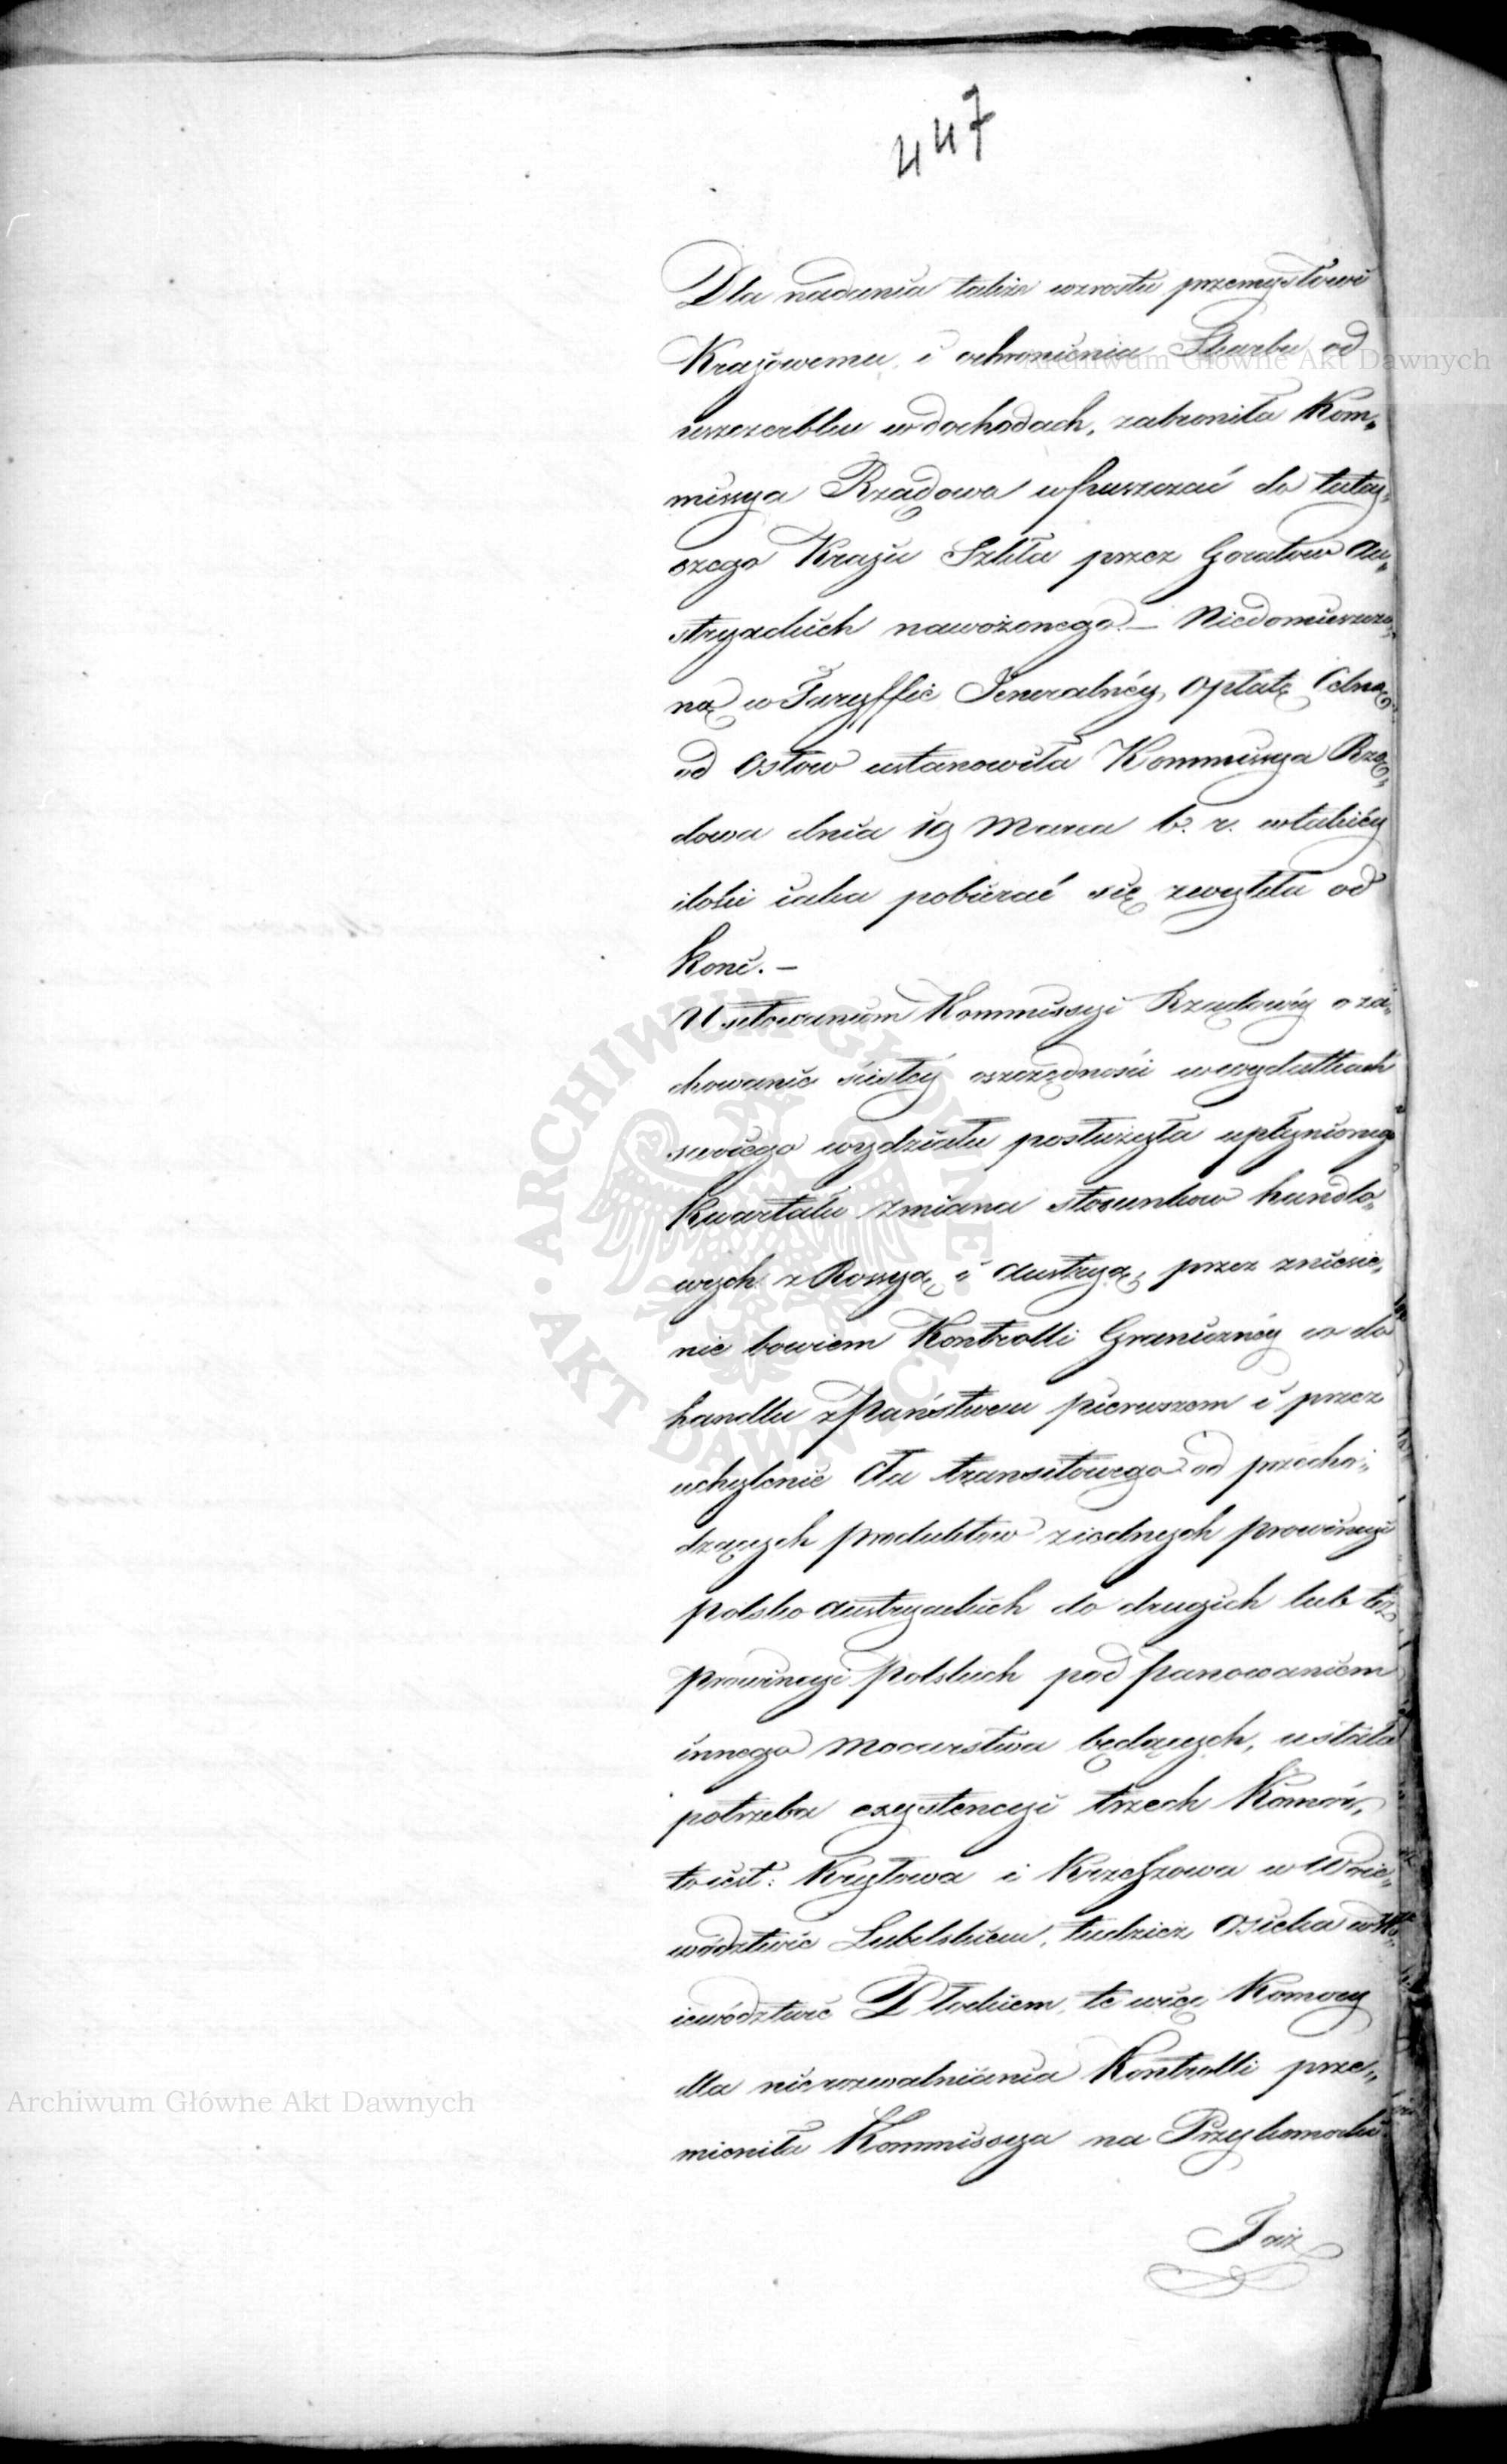 447
Dla nadania także wzrostu przemysłowi
Kraiowemu i ochronienia Skarbu od
uszczerbku w dochodach, zabroniła Kom„
missya Rządowa wpuszczać do tutey„
szego Kraiu Szkła przez Goralow Au„
stryackich nawożonego. — Niedomieszczo„
ną w Taryffie Jeneralnéy, Opłatę Celną
od Osłow ustanowiła Kommissya Rzą„
dowa dnia 19 Marca b. r. w takiéy
ilości iaka pobierać się zwykła od
koni. —
Usiłowaniom Kommissyi Rządowéy o za„
chowanie ścisłéy oszczędności w wydatkach
swoiego wydziału posłużyła upłynionego
Kwartału zmiana stosunkow handlo„
wych z Rossyą i Austryą, przez zniesie„
nie bowiem Kontrolli Graniczney co do
handlu z Państwem pierwszem i przez
uchylenie Cła transitowego od przecho„
dzących produktow z iednych prowincyi
polsko Austryackich do drugich lub też
prowincyi polskich pod panowaniem
innego mocarstwa będących, ustała
potrzeba exystencyi trzech Komór,
to iest: Kryłowa i Krzeszowa w Woie„
wództwie Lubelskiem, tudzież Osieka w Wo„
iewództwie Płockiem, te więc Komory
dla nierozwalniania Kontrolli prze„
mieniła Kommissya na Przykomorki
Taż
Archiwum Główne Akt Dawnych
Archiwum Główne Akt Dawnych
ARCHIWUM GŁÓWNE AKT DAWNYCH